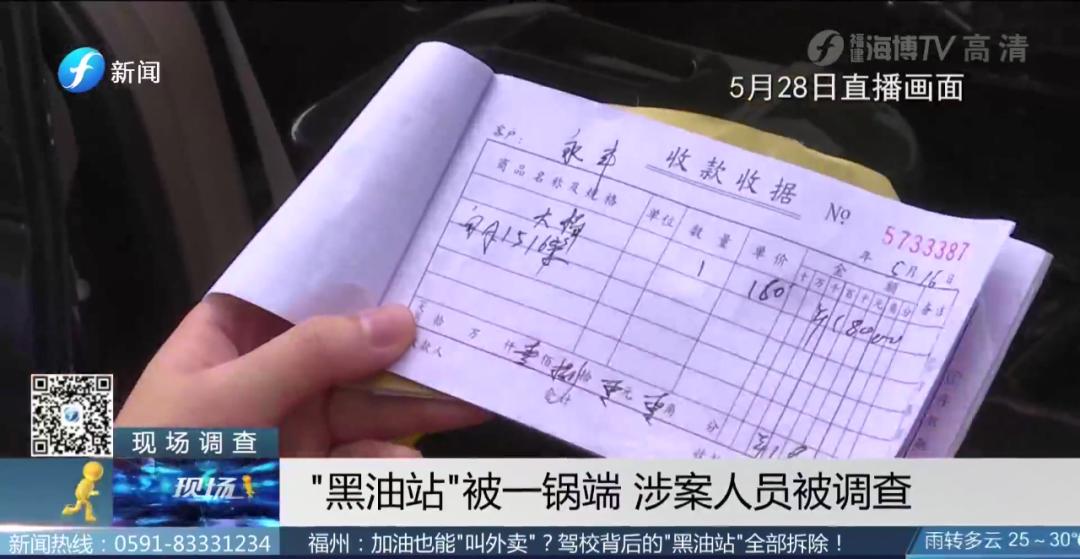 新闻
福建 海博TV 高清
5月28日直播画面
客户：
收款收据
№
5733387
年 5月16日
商品名称及规格
单位
数量
单价
金额
备注
十万千百十元角分
大桶
1
180
万 仟 壹佰捌拾 元 角 分
合计
收款人
现场调查
现场
"黑油站"被一锅端 涉案人员被调查
新闻热线：0591-83331234
福州：加油也能"叫外卖"？驾校背后的"黑油站"全部拆除！
雨转多云 25～30℃